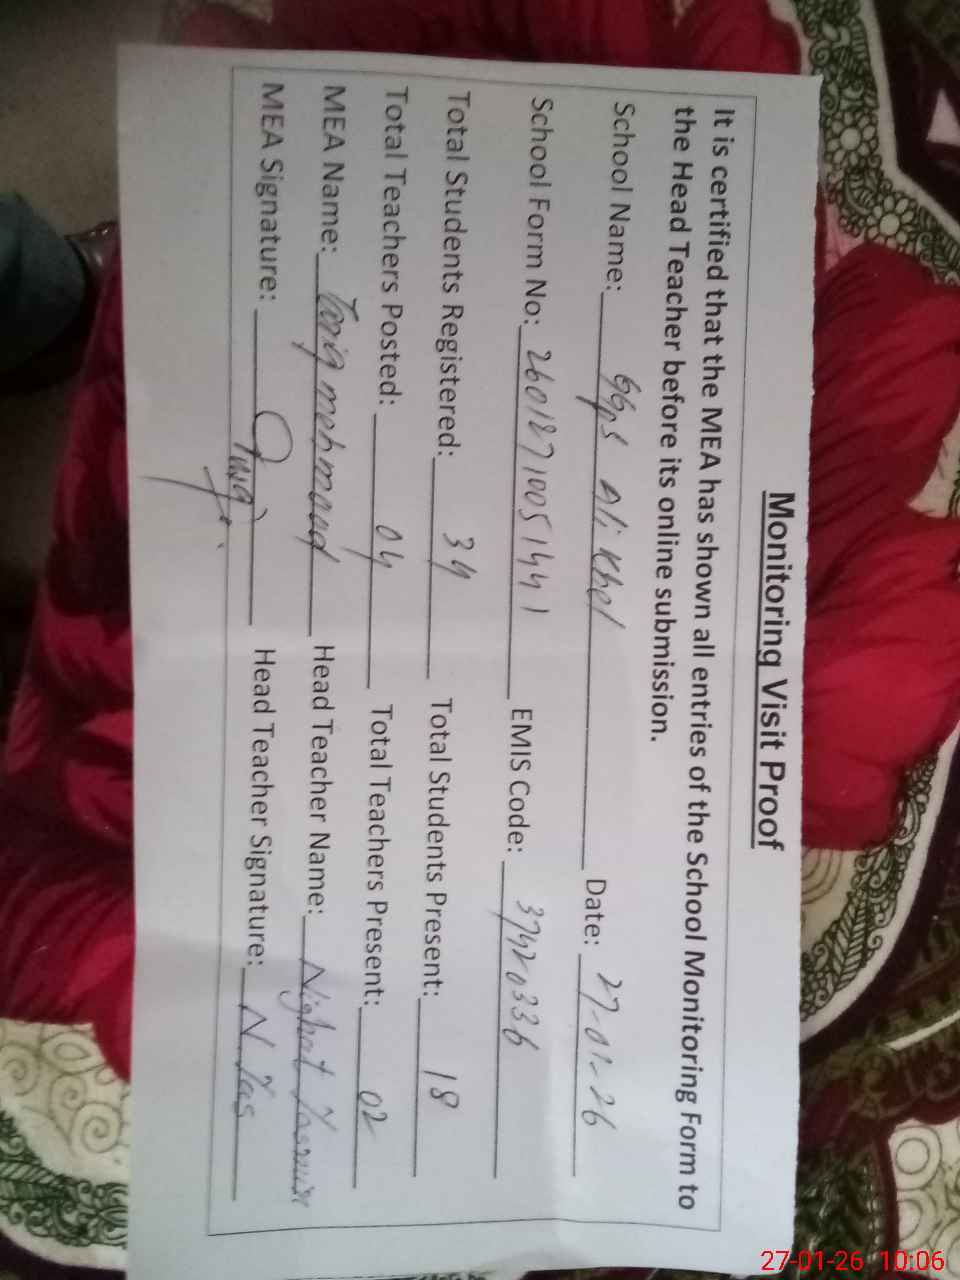 Monitoring Visit Proof
It is certified that the MEA has shown all entries of the School Monitoring Form to
the Head Teacher before its online submission.
School Name: GGPS Ali Khel Date: 27-01-26
School Form No: 26012710051441 EMIS Code: 37420336
Total Students Registered: 34 Total Students Present: 18
Total Teachers Posted: 04 Total Teachers Present: 02
MEA Name: Tariq mehmood Head Teacher Name: Nighat Yasmin
MEA Signature: Head Teacher Signature: N. Yas
27-01-26 10:06